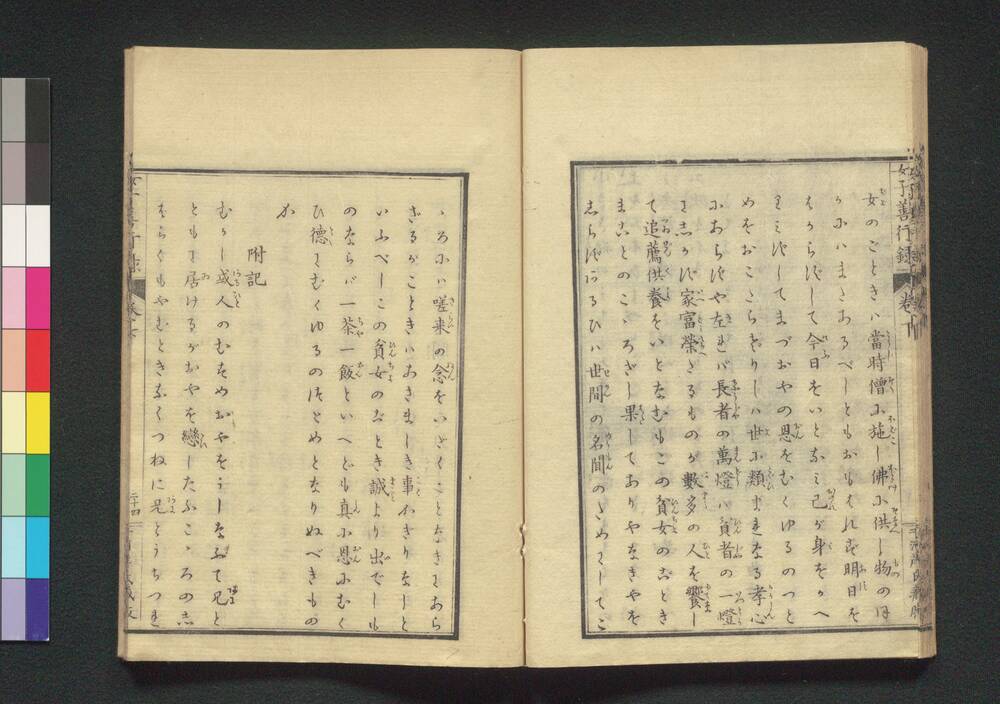 女のごときハ當時僧に施し佛に供し物のほ
かにハまたあるべしともおもはれず明日を
はからずして今日をいとなミ己が身をかへ
りミずしてまづおやの恩をむくゆるのつと
めをおこたらざりしハ世に類まれなる孝心
にあらずや左れバ長者の萬燈ハ貧者の一燈
にしかず家富榮ゑるものが數多の人を饗し
て追薦供養をいとなむもこの貧女のごとき
まことのこゝろざし果してありやなきやを
しらずあるひハ世間の名聞のためにしてこ
ゝろにハ嗟来の念をいだくことなきにあら
ざるがごときハあさましき事かぎりなしと
いふべしこの貧女のごとき誠より出でしも
のならバ一茶一飯といへども真に恩にむく
ひ徳にむくゆるのつとめとなりぬべきもの
か
附記
むかし或人のむすめおやをうしなふて兄と
ともに居けるがおやを戀したふこゝろの
はらくもやむときなくつねに兄とうちつれ
女子善行録
卷下
二十四